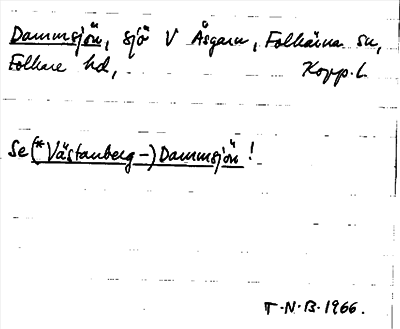 Dammsjön, sjö V Åsgarn, Folkärna sn,
Folkare hd, Kopp. l.
Se (*Västanberg-) Dammsjön!
T.N.B. 1966.